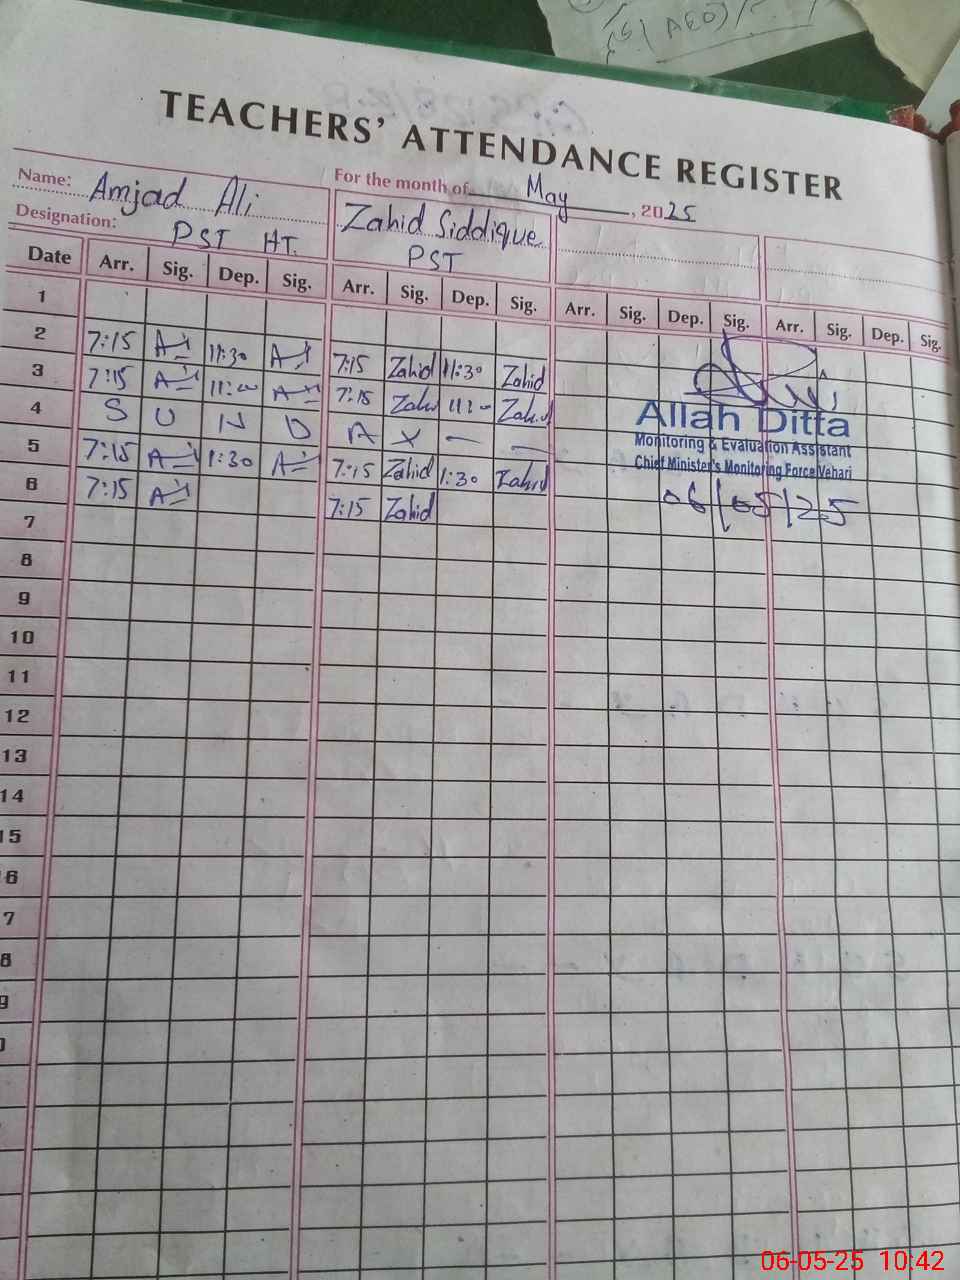 (S( AEO)/
TEACHERS' ATTENDANCE REGISTER
Name: Amjad Ali For the month of May, 2025
Designation: PST HT. Zahid Siddique PST
Date Arr. Sig. Dep. Sig. Arr. Sig. Dep. Sig. Arr. Sig. Dep. Sig. Arr. Sig. Dep. Sig.
1
2 7:15 11:30 7:15 Zahid 11:30 Zahid
3 7:15 11:00 7:15 Zahid Zahid
4 S U N D A Y — —
5 7:15 1:30 7:15 Zahid 1:30 Zahid
6 7:15 7:15 Zahid
Allah Ditta
Monitoring & Evaluation Assistant
Chief Minister's Monitoring Force Vehari
06/05/25
7
8
9
10
11
12
13
14
15
6
7
8
9
06-05-25 10:42